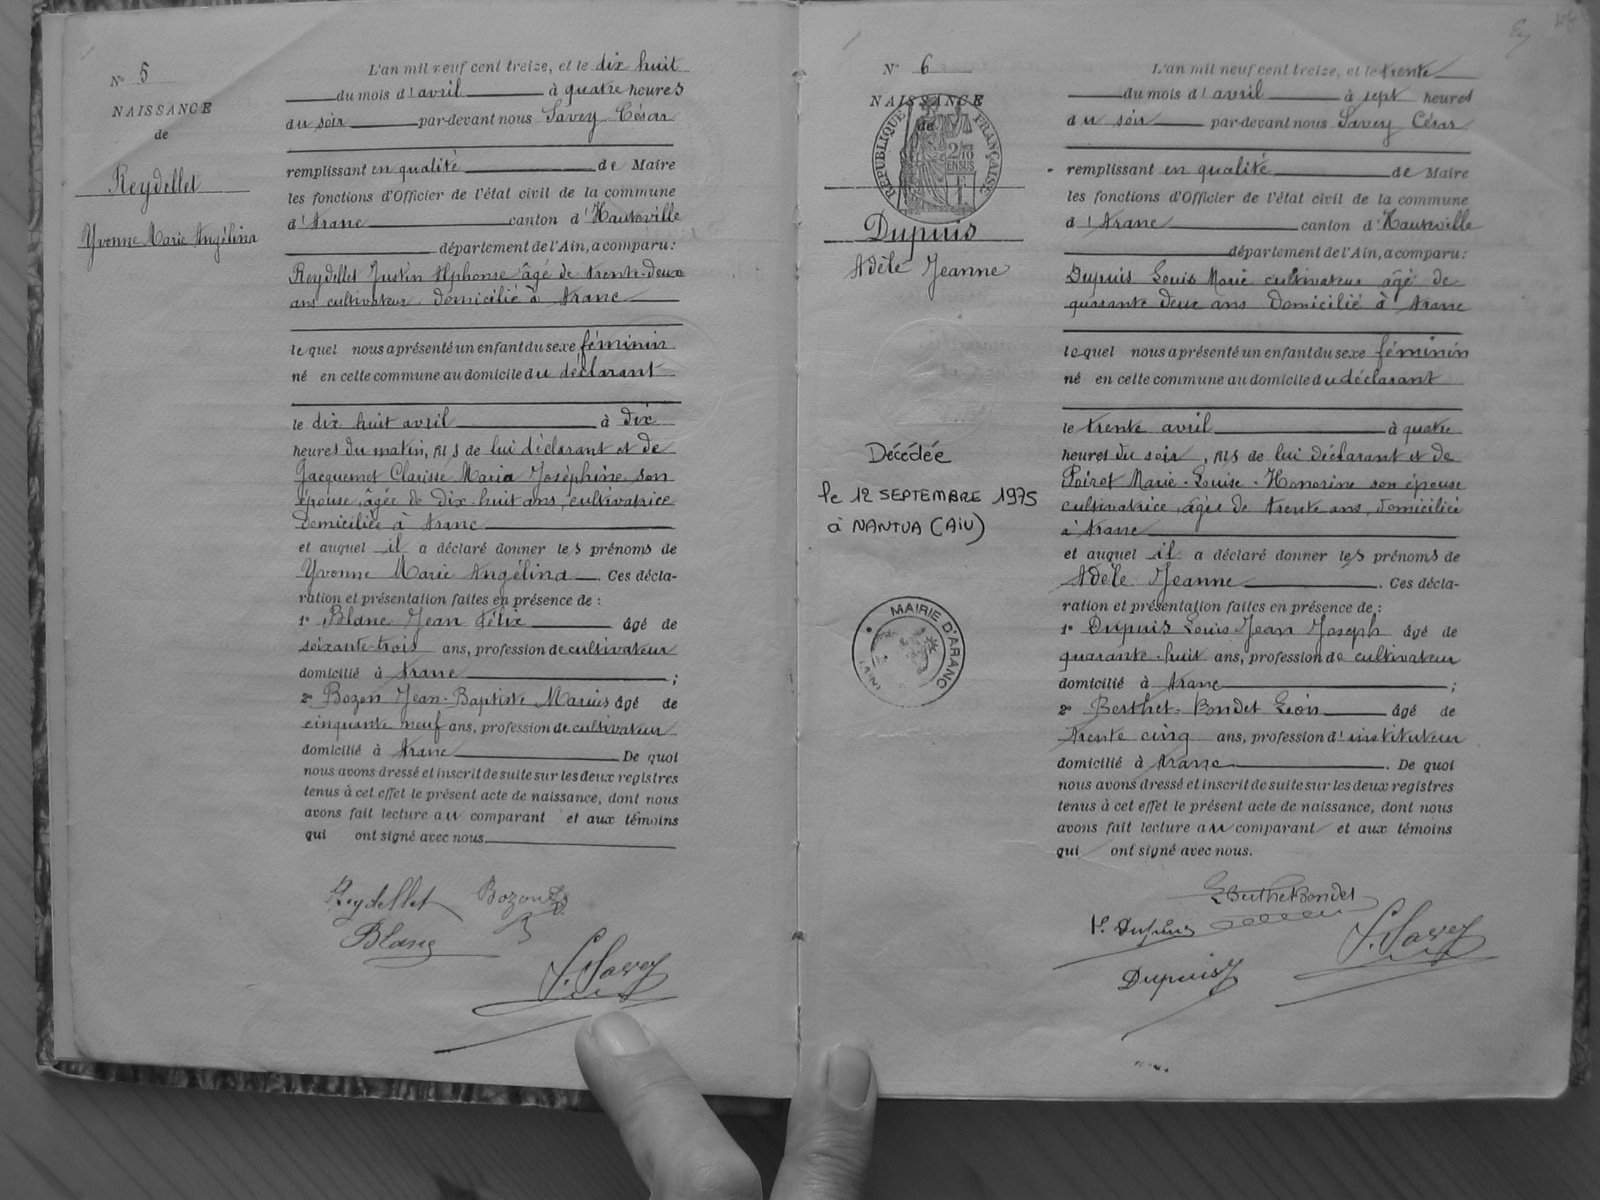 N° 5
NAISSANCE
de
Reydellet
Yvonne Marie Angélina
L'an mil neuf cent treize, et le dix huit
du mois d'avril à quatre heures
du soir par-devant nous Savey César
remplissant en qualité de Maire
les fonctions d'Officier de l'état civil de la commune
d'Aranc canton d'Hauteville
département de l'Ain, a comparu:
Reydellet Justin Alphonse âgé de trente-deux
ans cultivateur domicilié à Aranc
lequel nous a présenté un enfant du sexe féminin
né en cette commune au domicile du déclarant
le dix huit avril à dix
heures du matin, fils de lui déclarant et de
Jacquemet Clarisse Maria Joséphine son
épouse, âgée de dix-huit ans, cultivatrice
domiciliée à Aranc
et auquel il a déclaré donner les prénoms de
Yvonne Marie Angélina. Ces décla-
ration et présentation faites en présence de :
1° Blanc Jean Félix âgé de
soixante-trois ans, profession de cultivateur
domicilié à Aranc ;
2° Bozon Jean-Baptiste Marius âgé de
cinquante neuf ans, profession de cultivateur
domicilié à Aranc De quoi
nous avons dressé et inscrit de suite sur les deux registres
tenus à cet effet le présent acte de naissance, dont nous
avons fait lecture au comparant et aux témoins
qui ont signé avec nous.
Reydellet Bozon
Blanc
S. Savey
N° 6
NAISSANCE
de
RÉPUBLIQUE FRANÇAISE
2/10 EN SUS
Dupuis
Adèle Jeanne
Décédée
le 12 SEPTEMBRE 1975
à NANTUA (AIN)
MAIRIE D'ARANC
(AIN)
L'an mil neuf cent treize, et le trente
du mois d'avril à sept heures
du soir par-devant nous Savey César
remplissant en qualité de Maire
les fonctions d'Officier de l'état civil de la commune
d'Aranc canton d'Hauteville
département de l'Ain, a comparu:
Dupuis Louis Marie cultivateur âgé de
quarante deux ans domicilié à Aranc
lequel nous a présenté un enfant du sexe féminin
né en cette commune au domicile du déclarant
le trente avril à quatre
heures du soir, fils de lui déclarant et de
Poizot Marie-Louise-Honorine son épouse
cultivatrice, âgée de trente ans, domiciliée
à Aranc
et auquel il a déclaré donner les prénoms de
Adèle Jeanne. Ces décla-
ration et présentation faites en présence de :
1° Dupuis Louis Jean Joseph âgé de
quarante-huit ans, profession de cultivateur
domicilié à Aranc ;
2° Berthet-Bondet Léon âgé de
trente cinq ans, profession d'instituteur
domicilié à Aranc. De quoi
nous avons dressé et inscrit de suite sur les deux registres
tenus à cet effet le présent acte de naissance, dont nous
avons fait lecture au comparant et aux témoins
qui ont signé avec nous.
L Berthet Bondet
L. Dupuis
S. Savey
Dupuis